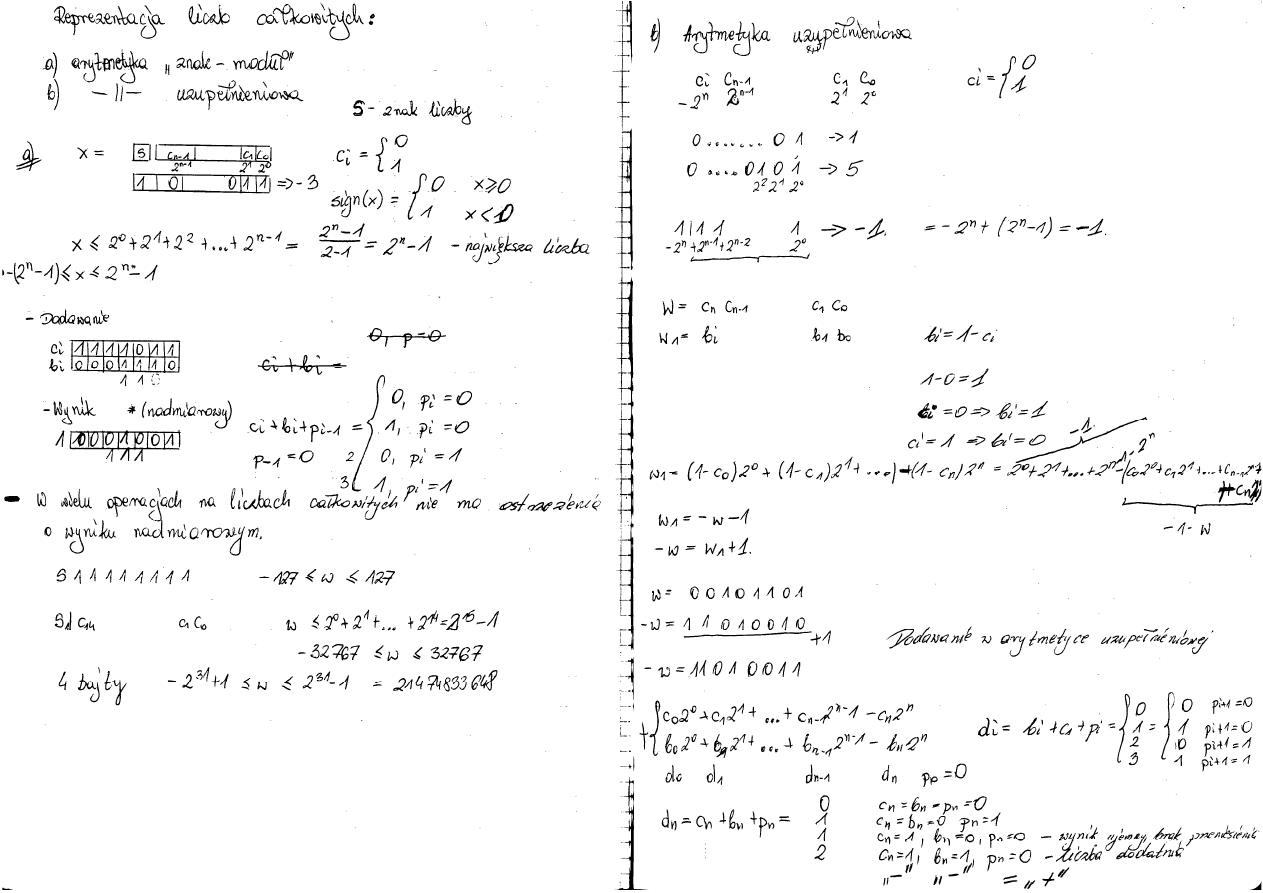 Reprezentacja liczb całkowitych:
a) arytmetyka „znak - moduł"
b) — 11 — uzupełnieniowa
S - znak liczby
a) x = S Cn-1 C1 C0
2^n-1 2^1 2^0
1 0 0 1 1 => -3
ci = { 0
1
sign(x) = { 0 x≥0
1 x<0
x ≤ 2^0+2^1+2^2+...+2^n-1 = (2^n-1)/(2-1) = 2^n-1 - największa liczba
-(2^n-1) ≤ x ≤ 2^n-1
- Dodawanie
ci 1 1 1 1 0 1 1
bi 0 0 0 1 1 1 0
1 1 0
0, p=0
ci + bi =
- Wynik * (nadmiarowy)
1 0 0 0 1 0 0 1
1 1 1
ci+bi+pi-1 = { 0, pi=0
1, pi=0
2 0, pi=1
3 1, pi=1
p-1=0
- W wielu operacjach na liczbach całkowitych nie ma ostrzeżenia
o wyniku nadmiarowym.
S 1 1 1 1 1 1 1 1 -127 ≤ w ≤ 127
S1 C14 C1 C0 w ≤ 2^0+2^1+...+2^14=2^15-1
-32767 ≤ w ≤ 32767
4 bajty -2^31+1 ≤ w ≤ 2^31-1 = 21474833648
b) Arytmetyka uzupełnieniowa
ci Cn-1 C1 C0
-2^n 2^n-1 2^1 2^0
ci = { 0
1
0........ 0 1 -> 1
0 ....0 1 0 1 -> 5
2^2 2^1 2^0
1 | 1 1 1 -> -1. = -2^n + (2^n-1) = -1.
-2^n+2^n-1+2^n-2 2^0
W = Cn Cn-1 C1 C0
W1 = bi b1 b0 bi = 1-ci
1-0=1
ci=0 => bi=1
ci=1 => bi=0
-1.
W1 = (1-C0)2^0 + (1-C1)2^1+....) + (1-Cn)2^n = 2^0+2^1+...+2^n-1-2^n-(C0 2^0+C1 2^1+...+Cn-1 2^n-1
+Cn
-1-W
W1 = -W-1
-W = W1+1.
W = 0 0 1 0 1 1 0 1
-W = 1 1 0 1 0 0 1 0 +1
Dodawanie w arytmetyce uzupełnieniowej
-W = 11 0 1 0 0 1 1
+ { C0 2^0+C1 2^1+...+Cn-1 2^n-1-Cn 2^n
b0 2^0+b1 2^1+...+bn-1 2^n-1-bn 2^n
di = bi+c1+pi = { 0 = { 0 pi+1=0
1 1 pi+1=0
2 0 pi+1=1
3 1 pi+1=1
d0 d1 dn-1 dn p0=0
dn = cn+bn+pn = 0 cn=bn=pn=0
1 cn=bn=0 pn=1
1 cn=1, bn=0, pn=0 - wynik ujemny, brak przeniesienia
2 cn=1, bn=1, pn=0 - liczba dodatnia
„-" „-" = „+"